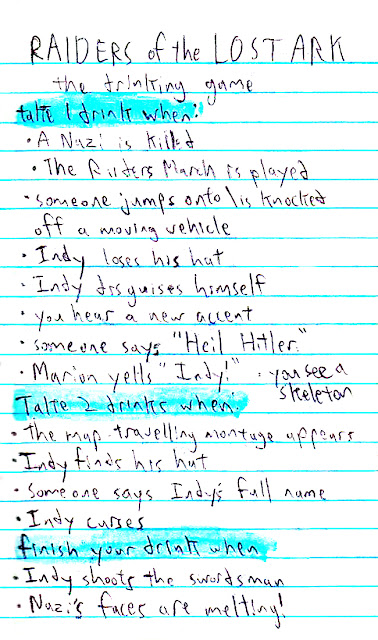 RAIDERS of the LOST ARK
the drinking game
take 1 drink when:
• A Nazi is killed
• The Raiders March is played
• someone jumps onto \ is knocked
off a moving vehicle
• Indy loses his hat
• Indy disguises himself
• you hear a new accent
• someone says "Heil Hitler"
• Marion yells "Indy!" • you see a
skeleton
Take 2 drinks when:
• the map-travelling montage appears
• Indy finds his hat
• Someone says Indy's full name
• Indy curses
finish your drink when
• Indy shoots the swordsman
• Nazi's faces are melting!